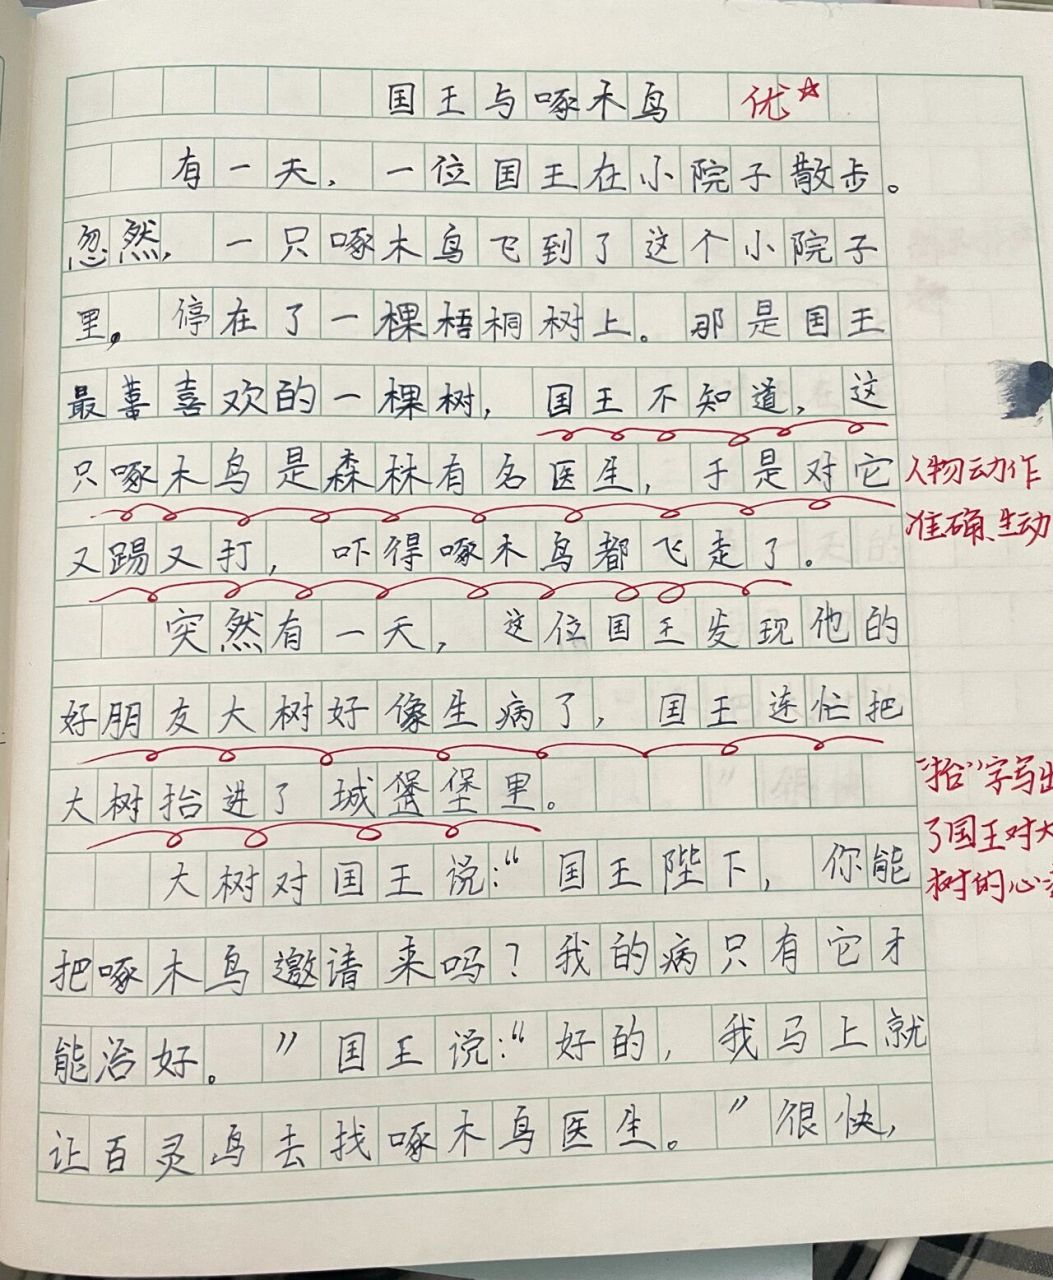 国王与啄木鸟 优☆
有一天，一位国王在小院子散步。
忽然，一只啄木鸟飞到了这个小院子
里。停在了一棵梧桐树上。那是国王
最喜喜欢的一棵树，国王不知道，这
只啄木鸟是森林有名医生，于是对它
人物动作
准确、生动
又踢又打，吓得啄木鸟都飞走了。
突然有一天，这位国王发现他的
好朋友大树好像生病了，国王连忙把
大树抬进了城堡堡里。
"抬"字写出
了国王对大
树的心
大树对国王说：“国王陛下，你能
把啄木鸟邀请来吗？我的病只有它才
能治好。”国王说：“好的，我马上就
让百灵鸟去找啄木鸟医生。”很快，